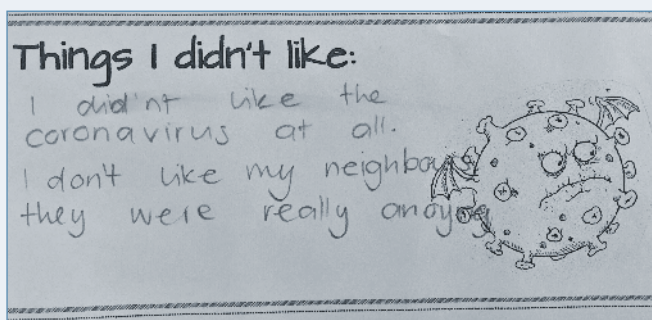 Things I didn't like:
I did'nt like the
coronavirus at all.
I don't like my neighbours
they were really anoying